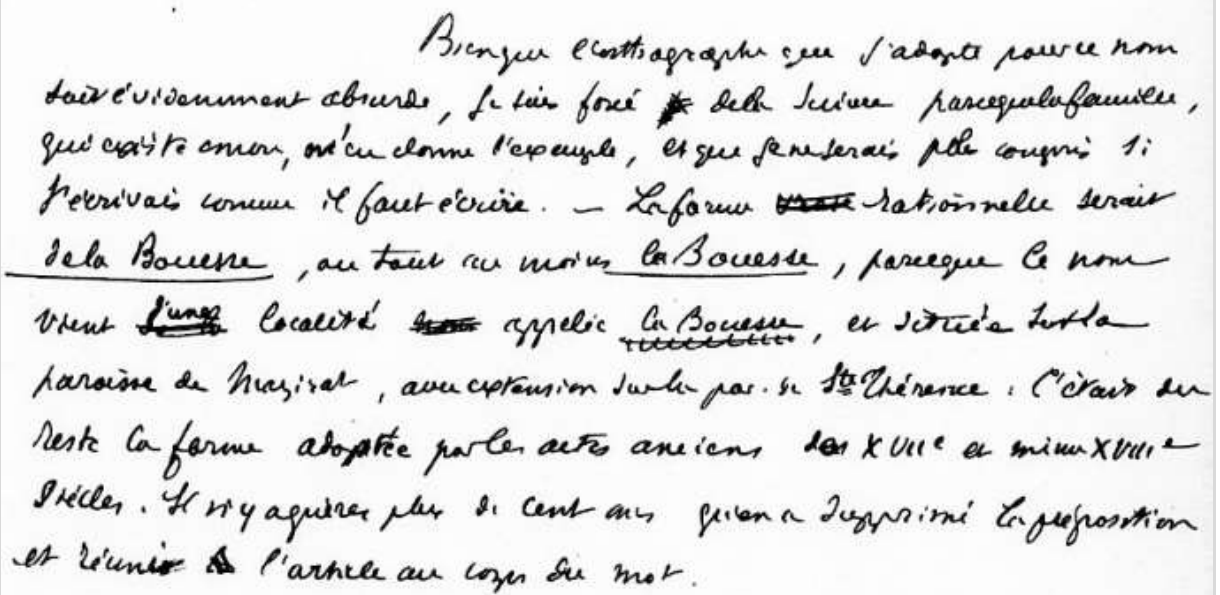 Bien que l'orthographe que j'adopte pour ce nom
soit évidemment absurde, je suis forcé de la suivre parceque la famille,
qui existe encore, m'en donne l'exemple, et que je ne serais plus compris si
j'écrivais comme il faut écrire. — La forme rationnelle serait
de la Bouesse, ou tout au moins la Bouesse, parceque le nom
vient d'une localité appelée la Bouesse, et située sur la
paroisse de Mazirat, avec extension sur la par. de Ste Thérence. C'était du
reste la forme adoptée par les actes anciens des XVIIe et même XVIIIe
siècles. Il n'y a guères plus de cent ans qu'on a supprimé la préposition
et réuni l'article au corps du mot.